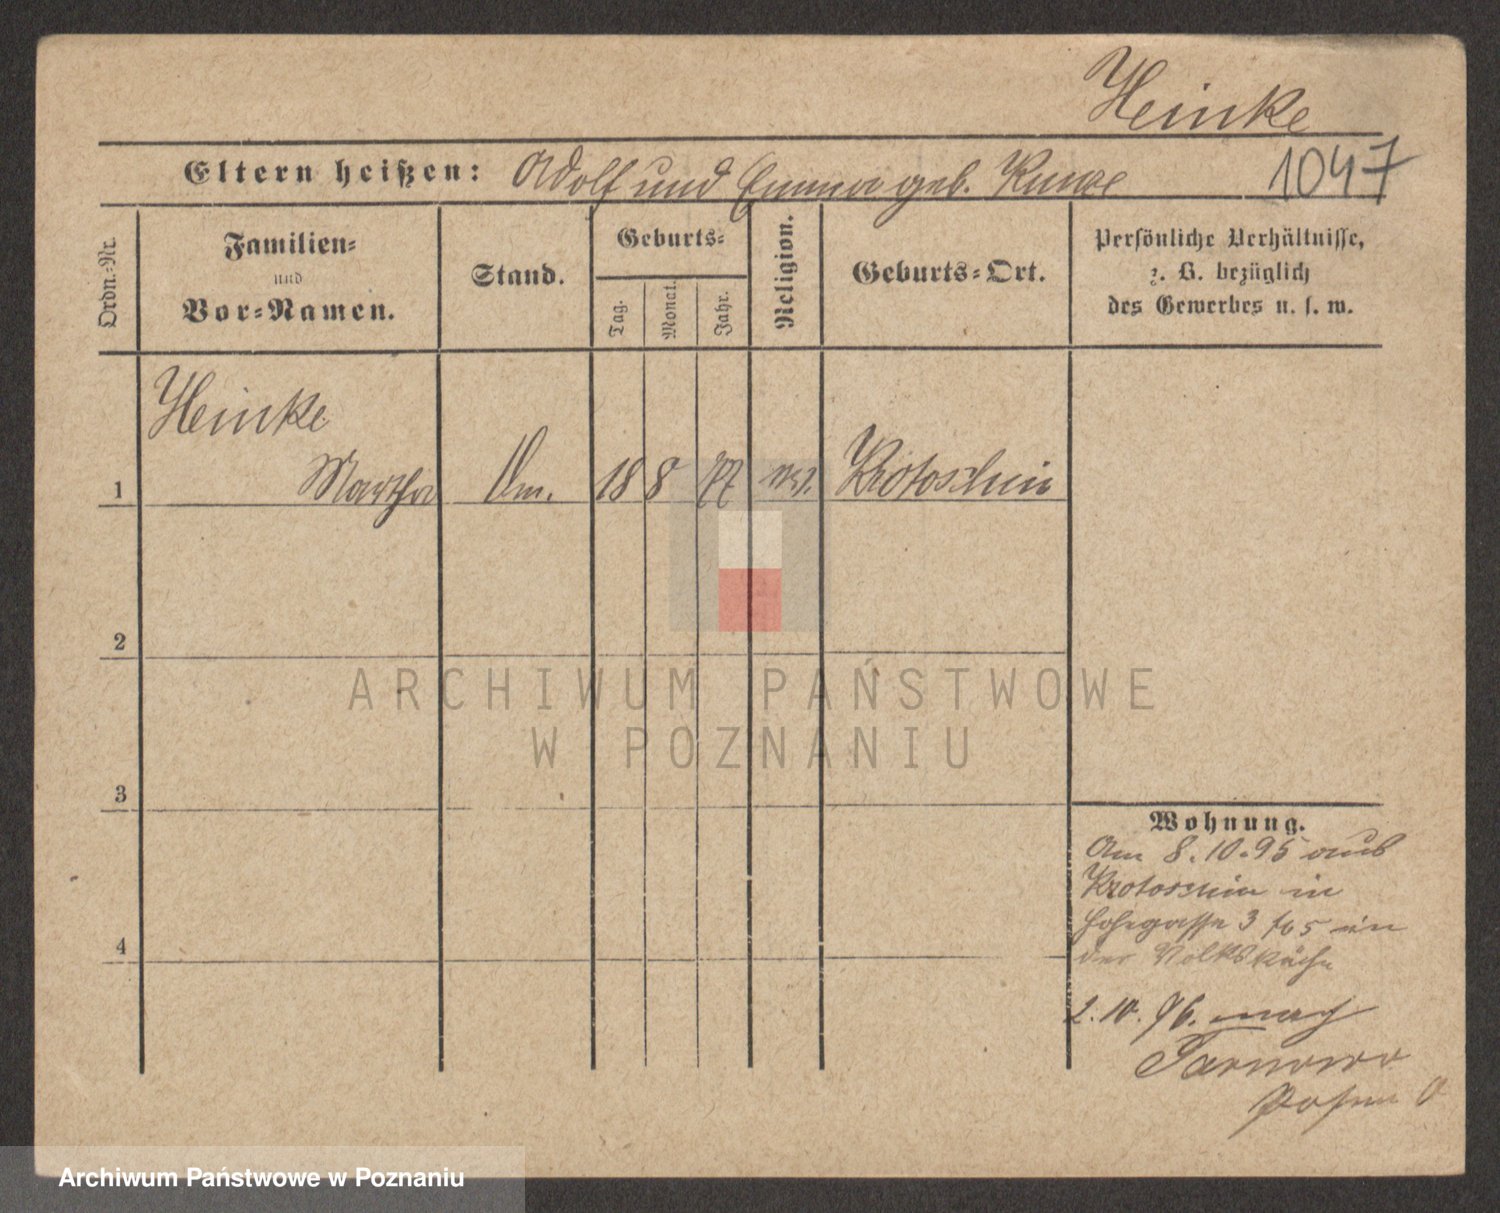 Heinke
Eltern heißen: Adolf und Emma geb. Kunze
1047
Ordn.-Nr.
Familien-
und
Vor-Namen.
Stand.
Geburts-
Tag.
Monat.
Jahr.
Religion.
Geburts-Ort.
Persönliche Verhältnisse,
z. B. bezüglich
des Gewerbes u. s. w.
Heinke
1 Martha 18 8 77 ev. Krotoschin
2
3
4
Wohnung.
Am 8.10.95 aus
Krotoschin in
Hohegasse 3 bei
der Volksküche
2.10.96. nach
Tarnowo
Posen O
ARCHIWUM PAŃSTWOWE
W POZNANIU
Archiwum Państwowe w Poznaniu